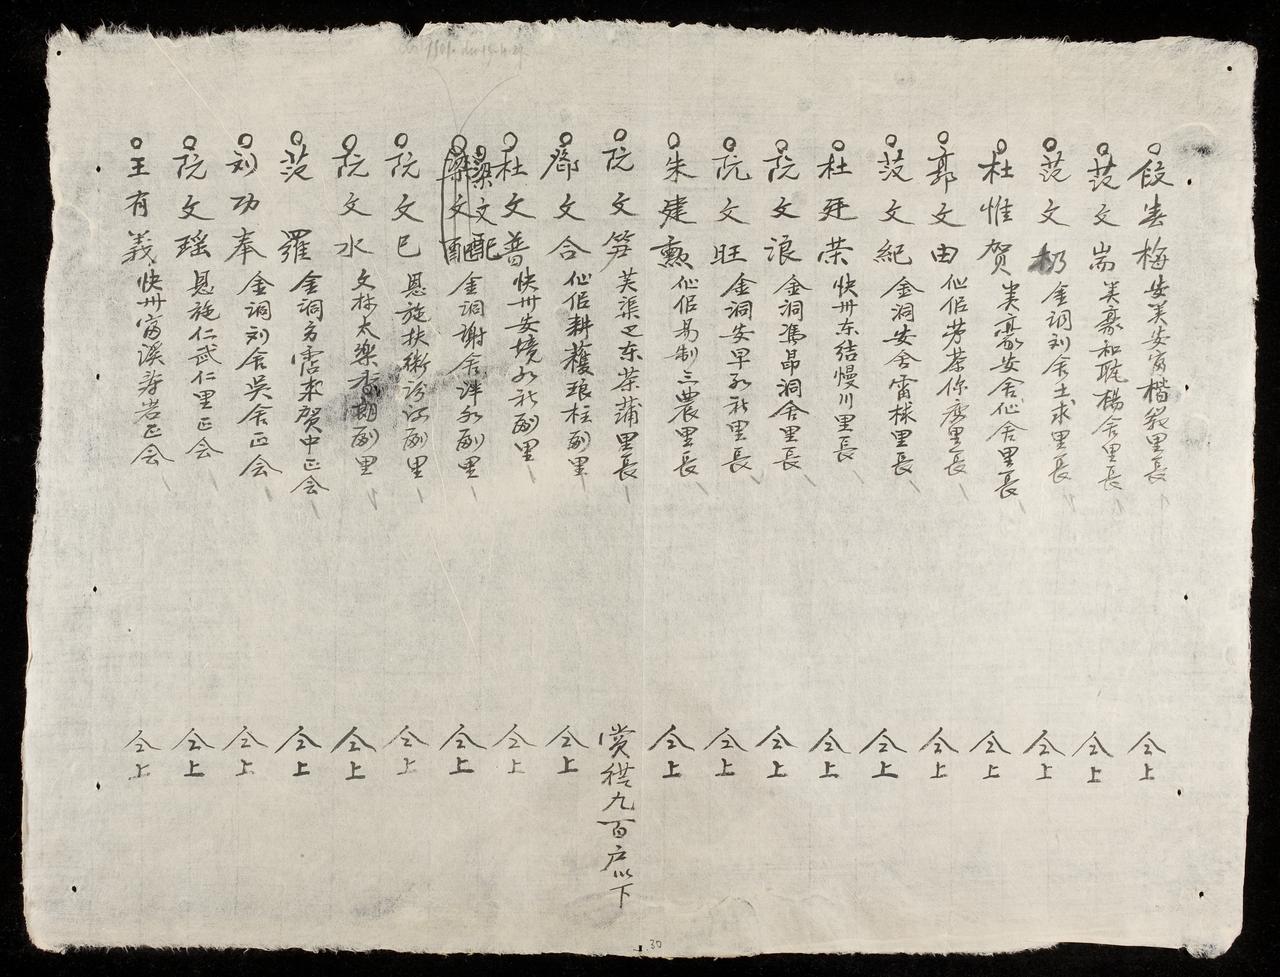 段 梅 安美安富楷 里長 仝上
范文耑 美豪和 楊舍里長 仝上
范文 金洞刘舍土求里長 仝上
杜惟贺 美豪安舍仙舍里長 仝上
郭文由 仙侶芽茶你 里長 仝上
范文紀 金洞安舍雷球里長 仝上
杜 荣 快州东结慢川里長 仝上
阮文浪 金洞馮昂洞舍里長 仝上
阮文旺 金洞安早永 里長 仝上
朱建勲 仙侶易制三農里長 仝上
阮文笋 芙渠 东茶蒲里長 賞 九百户以下
鄧文合 仙侶耕穫琅柱副里 仝上
杜文普 快州安境永 副里 仝上
梁文配 金洞謝舍泮永副里 仝上
阮文巳 恩施扶衛汾江副里 仝上
阮文水 文林太楽 副里 仝上
范羅 金洞 贺中正会 仝上
刘功奉 金洞刘舍吳舍正会 仝上
阮文瑶 恩施仁武仁里正会 仝上
王有義 快州富溪寿岩正会 仝上
30